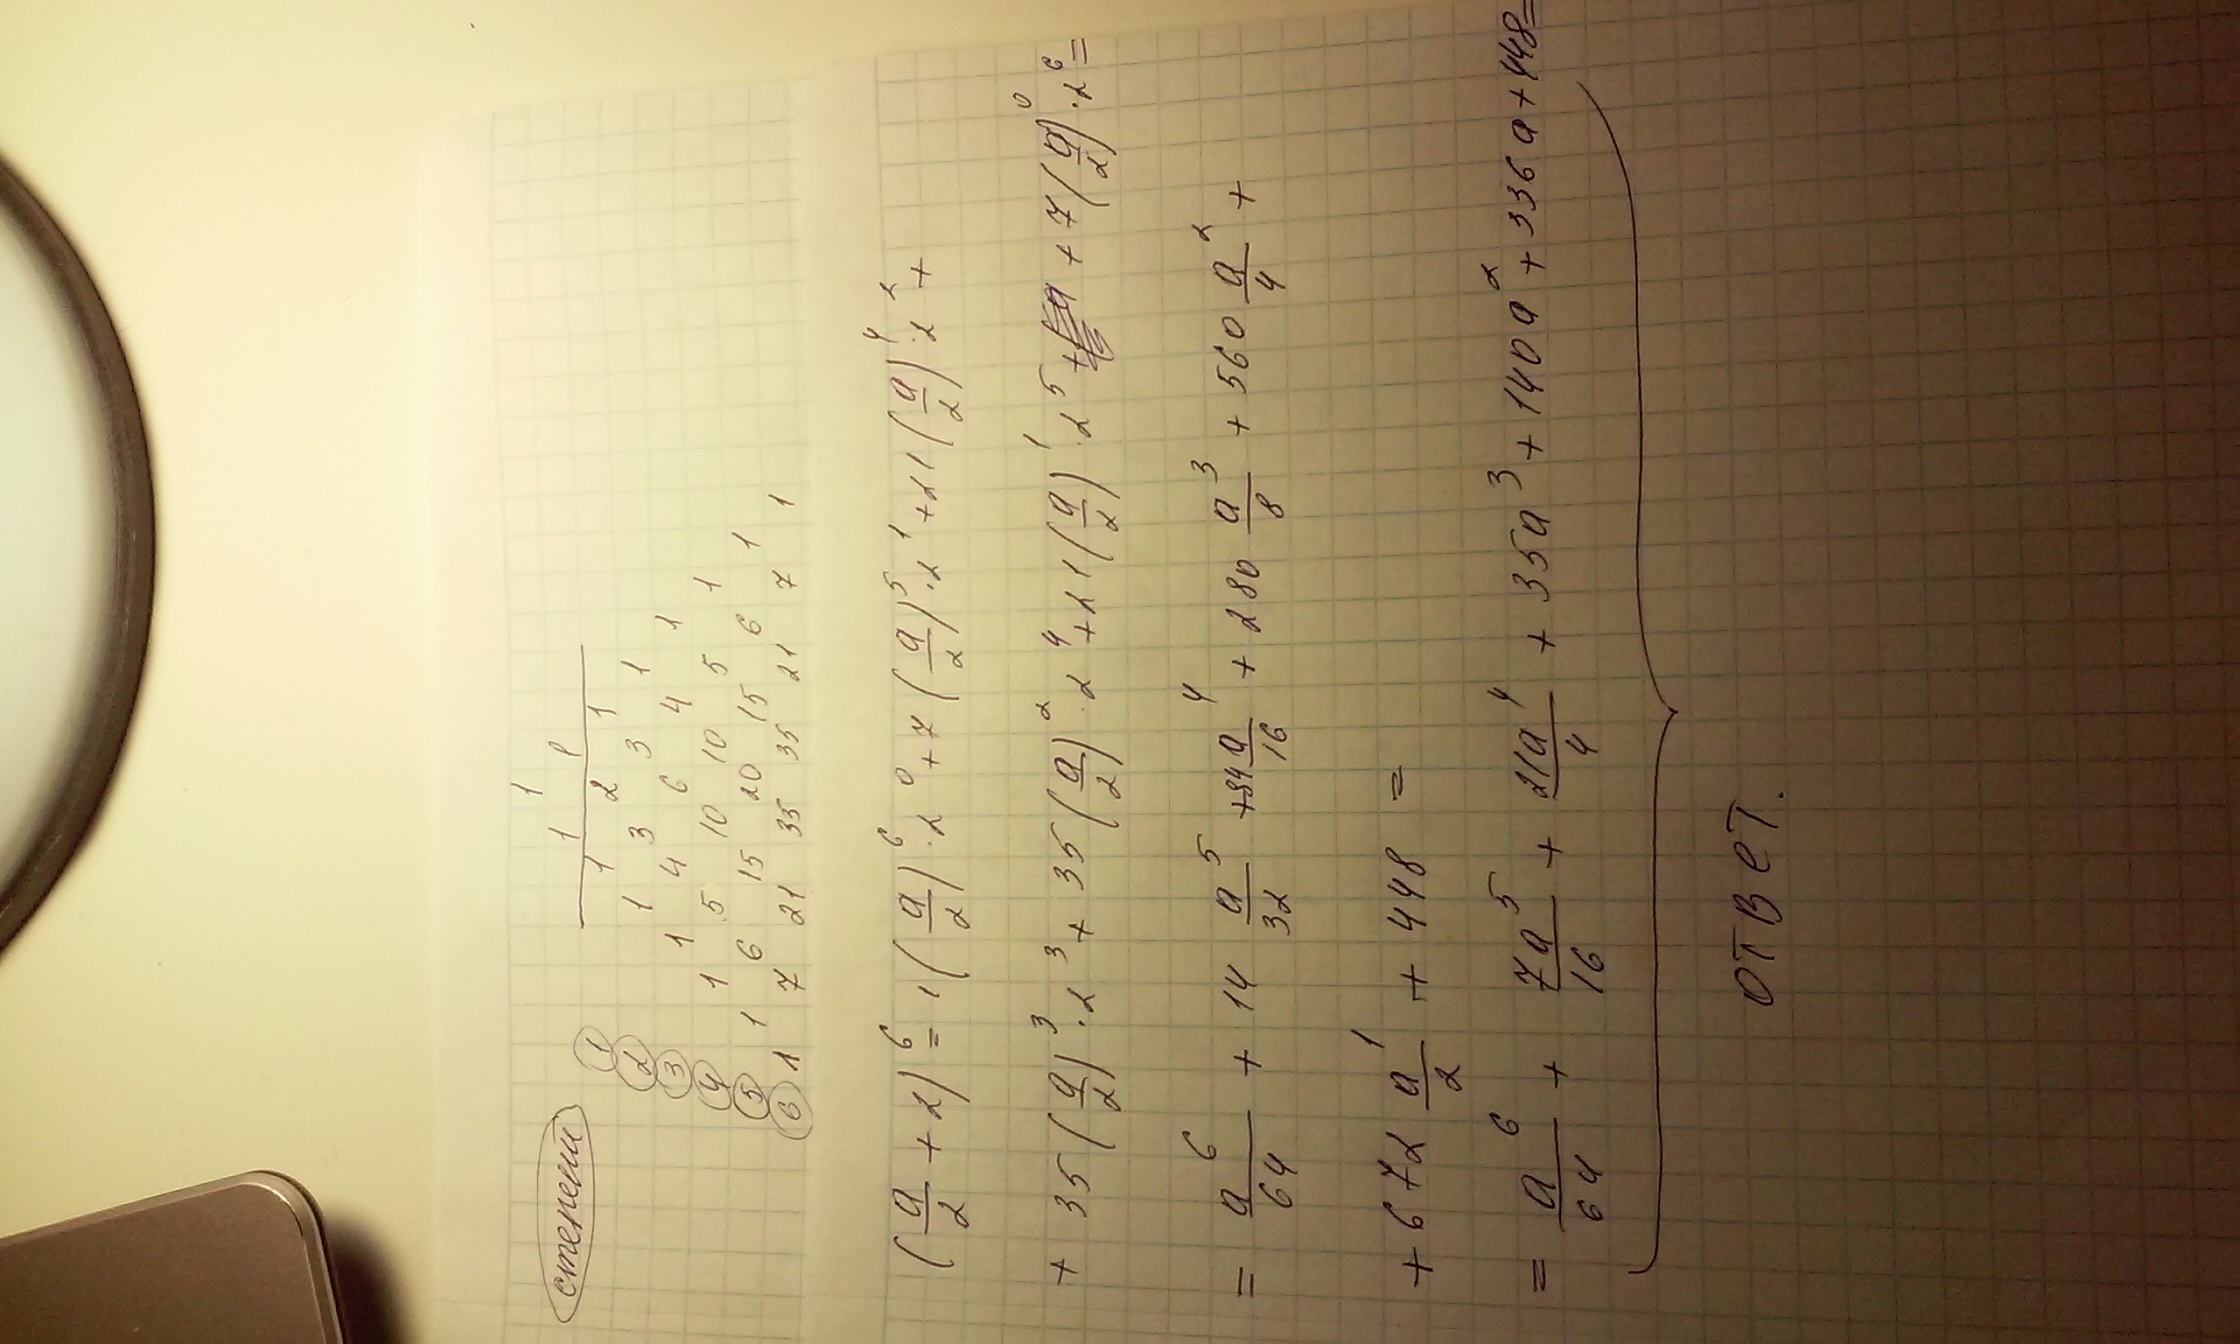 степени
1
1 1
① 1 2 1
② 1 3 3 1
③ 1 4 6 4 1
④ 1 5 10 10 5 1
⑤ 1 6 15 20 15 6 1
⑥ 1 7 21 35 35 21 7 1
(a/2 + 2)^6 = 1(a/2)^6 · 2^0 + 7(a/2)^5 · 2^1 + 21(a/2)^4 · 2^2 +
+ 35(a/2)^3 · 2^3 + 35(a/2)^2 · 2^4 + 21(a/2)^1 · 2^5 + 7(a/2)^0 · 2^6 =
= a^6/64 + 14 a^5/32 + 84 a^4/16 + 280 a^3/8 + 560 a^2/4 +
+ 672 a^1/2 + 448 =
= a^6/64 + 7a^5/16 + 21a^4/4 + 35a^3 + 140a^2 + 336a + 448 =
ответ.